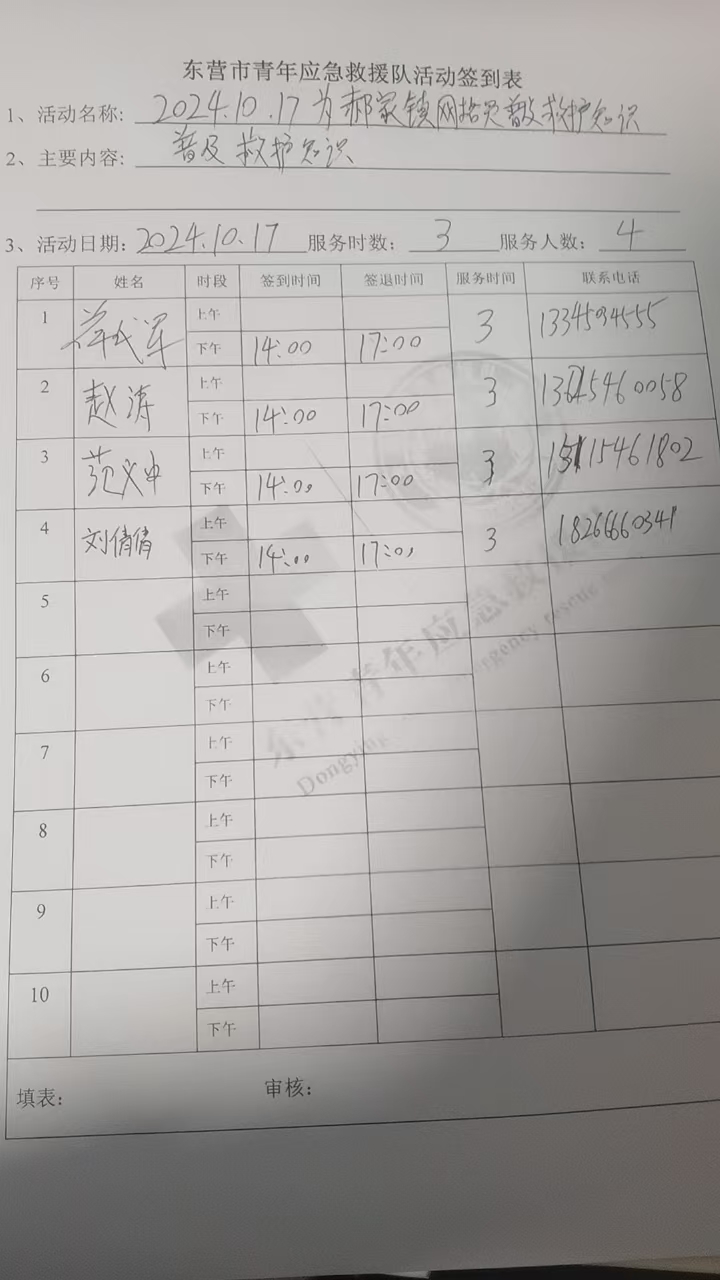 东营市青年应急救援队活动签到表
1、活动名称: 2024.10.17为郝家镇网格员普及救护知识
2、主要内容: 普及救护知识
3、活动日期: 2024.10.17 服务时数: 3 服务人数: 4
序号 姓名 时段 签到时间 签退时间 服务时间 联系电话
1 上午
下午 14:00 17:00 3 1334594555
2 赵涛 上午
下午 14:00 17:00 3 13615460058
3 范义中 上午
下午 14:00 17:00 3 15115461802
4 刘倩倩 上午
下午 14:00 17:00 3 18266660341
5 上午
下午
6 上午
下午
7 上午
下午
8 上午
下午
9 上午
下午
10 上午
下午
填表: 审核:
东营青年应急救
Dongying emergency rescue